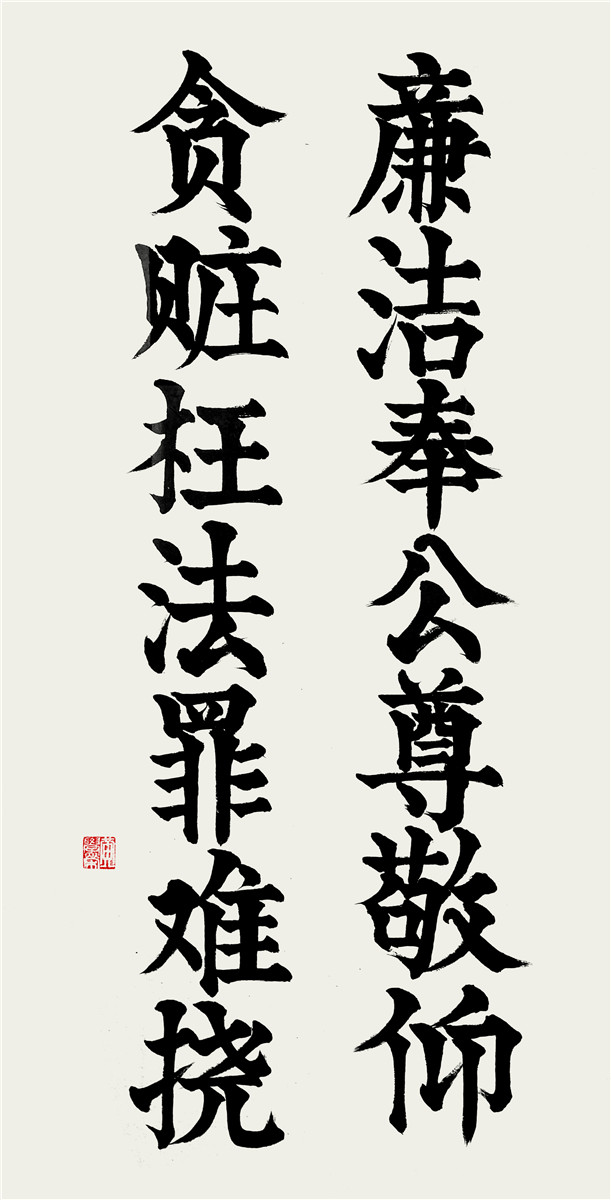 廉洁奉公尊敬仰
贪赃枉法罪难挠